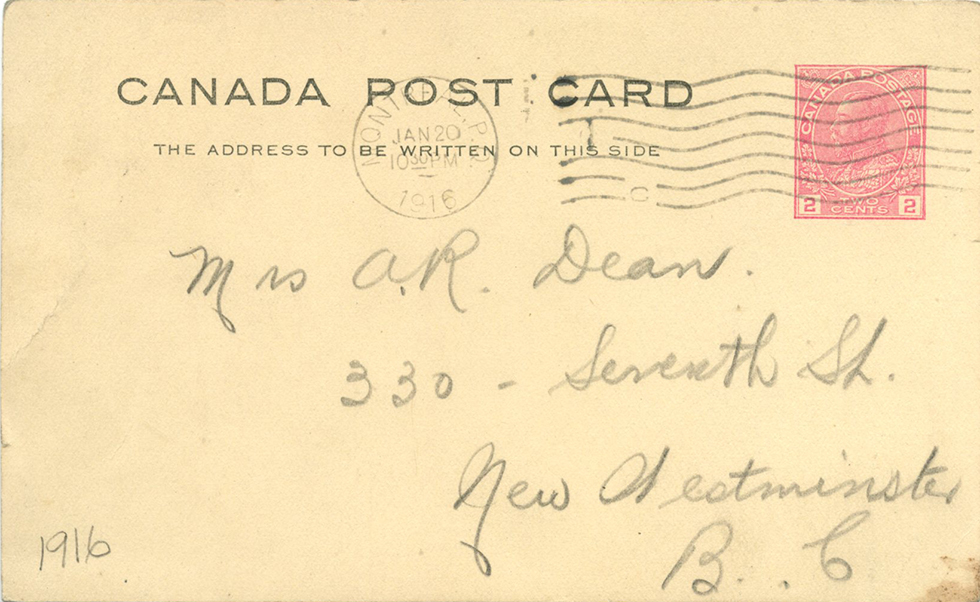 CANADA POST CARD
THE ADDRESS TO BE WRITTEN ON THIS SIDE
MONTREAL. P.Q.
JAN 20
10 30 PM
1916
C
CANADA POSTAGE
2 TWO CENTS 2
Mrs A.R. Dean.
330 - Seventh St.
New Westminster
B.. C
1916